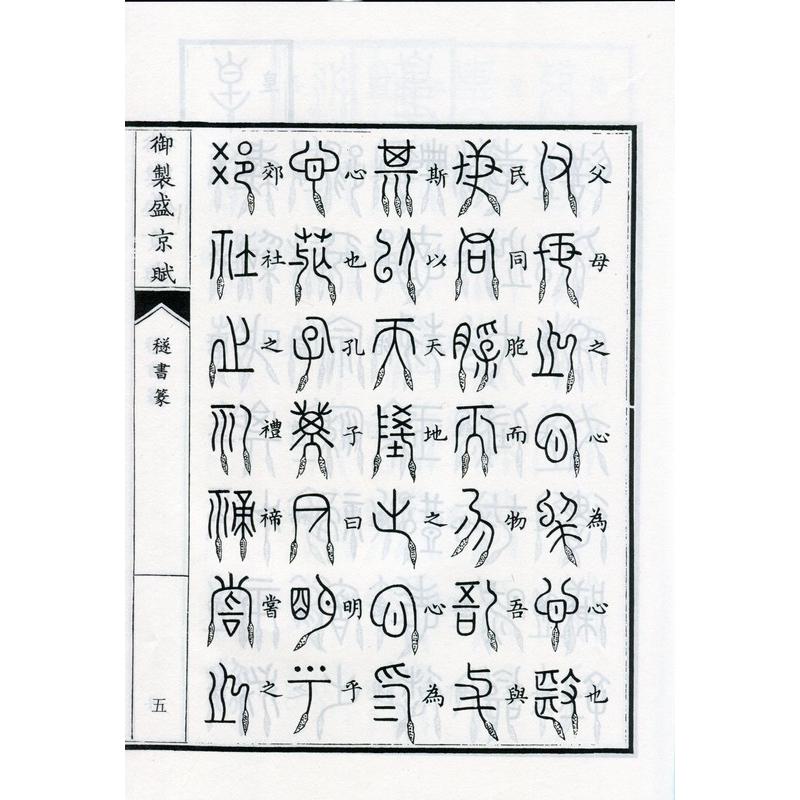 父母之心為心也
民同胞而物吾與
斯以天地之心為
心也孔子曰明乎
郊社之禮禘嘗之
御製盛京賦
穟書篆
五